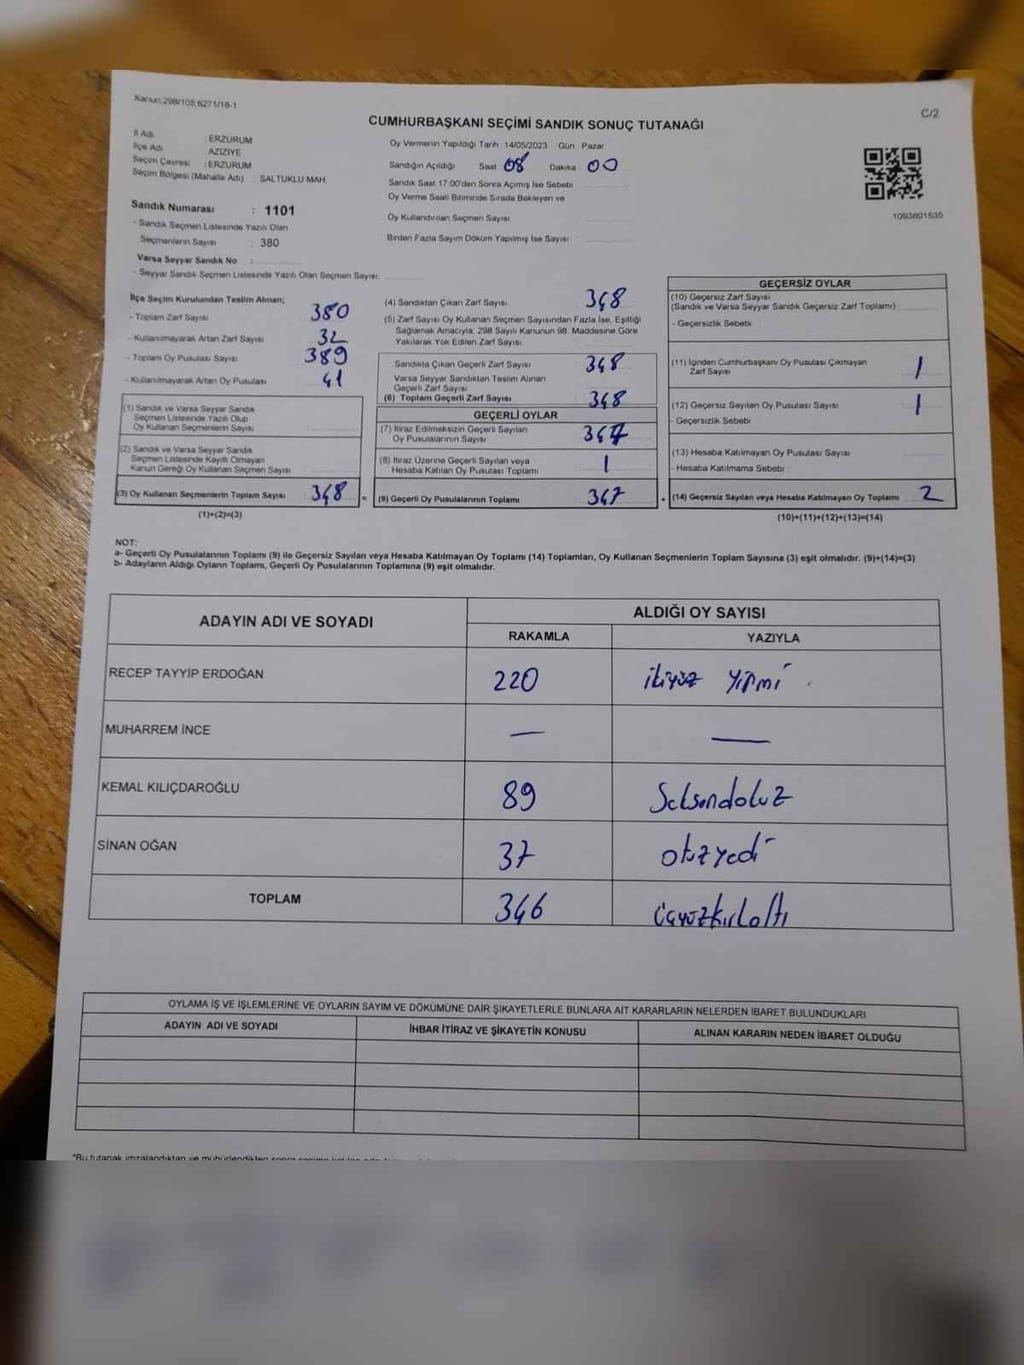 Kanun:298/105;6271/18-1
C/2
CUMHURBAŞKANI SEÇİMİ SANDIK SONUÇ TUTANAĞI
İl Adı : ERZURUM
İlçe Adı : AZİZİYE
Seçim Çevresi : ERZURUM
Seçim Bölgesi (Mahalle Adı) : SALTUKLU MAH.
Oy Vermenin Yapıldığı Tarih 14/05/2023 Gün Pazar
Sandığın Açıldığı Saat 08 Dakika 00
Sandık Saat 17:00'den Sonra Açılmış İse Sebebi
Oy Verme Saati Bitiminde Sırada Bekleyen ve
Oy Kullandırılan Seçmen Sayısı
Birden Fazla Sayım Döküm Yapılmış İse Sayısı
1093801535
Sandık Numarası : 1101
- Sandık Seçmen Listesinde Yazılı Olan
Seçmenlerin Sayısı : 380
Varsa Seyyar Sandık No :
- Seyyar Sandık Seçmen Listesinde Yazılı Olan Seçmen Sayısı:
İlçe Seçim Kurulundan Teslim Alınan;
- Toplam Zarf Sayısı 380
- Kullanılmayarak Artan Zarf Sayısı 32
- Toplam Oy Pusulası Sayısı 389
- Kullanılmayarak Artan Oy Pusulası 41
(1) Sandık ve Varsa Seyyar Sandık
Seçmen Listesinde Yazılı Olup
Oy Kullanan Seçmenlerin Sayısı
(2) Sandık ve Varsa Seyyar Sandık
Seçmen Listesinde Kayıtlı Olmayan
Kanun Gereği Oy Kullanan Seçmen Sayısı
(3) Oy Kullanan Seçmenlerin Toplam Sayısı 348 =
(1)+(2)=(3)
(4) Sandıktan Çıkan Zarf Sayısı 348
(5) Zarf Sayısı Oy Kullanan Seçmen Sayısından Fazla İse, Eşitliği
Sağlamak Amacıyla; 298 Sayılı Kanunun 98. Maddesine Göre
Yakılarak Yok Edilen Zarf Sayısı
Sandıkta Çıkan Geçerli Zarf Sayısı 348
Varsa Seyyar Sandıktan Teslim Alınan
Geçerli Zarf Sayısı
(6) Toplam Geçerli Zarf Sayısı 348
GEÇERLİ OYLAR
(7) İtiraz Edilmeksizin Geçerli Sayılan
Oy Pusulalarının Sayısı 347
(8) İtiraz Üzerine Geçerli Sayılan veya
Hesaba Katılan Oy Pusulası Toplamı 1
(9) Geçerli Oy Pusulalarının Toplamı 347 +
GEÇERSİZ OYLAR
(10) Geçersiz Zarf Sayısı
(Sandık ve Varsa Seyyar Sandık Geçersiz Zarf Toplamı) :
- Geçersizlik Sebebi
(11) İçinden Cumhurbaşkanı Oy Pusulası Çıkmayan
Zarf Sayısı 1
(12) Geçersiz Sayılan Oy Pusulası Sayısı 1
- Geçersizlik Sebebi
(13) Hesaba Katılmayan Oy Pusulası Sayısı
- Hesaba Katılmama Sebebi
(14) Geçersiz Sayılan veya Hesaba Katılmayan Oy Toplamı 2
(10)+(11)+(12)+(13)=(14)
NOT:
a- Geçerli Oy Pusulalarının Toplamı (9) ile Geçersiz Sayılan veya Hesaba Katılmayan Oy Toplamı (14) Toplamları, Oy Kullanan Seçmenlerin Toplam Sayısına (3) eşit olmalıdır. (9)+(14)=(3)
b- Adayların Aldığı Oyların Toplamı, Geçerli Oy Pusulalarının Toplamına (9) eşit olmalıdır.
ADAYIN ADI VE SOYADI
ALDIĞI OY SAYISI
RAKAMLA YAZIYLA
RECEP TAYYİP ERDOĞAN 220 ikiyüz yirmi
MUHARREM İNCE — —
KEMAL KILIÇDAROĞLU 89 Seksendokuz
SİNAN OĞAN 37 otuzyedi
TOPLAM 346 üçyüzkırkaltı
OYLAMA İŞ VE İŞLEMLERİNE VE OYLARIN SAYIM VE DÖKÜMÜNE DAİR ŞİKAYETLERLE BUNLARA AİT KARARLARIN NELERDEN İBARET BULUNDUKLARI
ADAYIN ADI VE SOYADI
İHBAR İTİRAZ VE ŞİKAYETİN KONUSU
ALINAN KARARIN NEDEN İBARET OLDUĞU
*Bu tutanak imzalandıktan ve mühürlendikten sonra